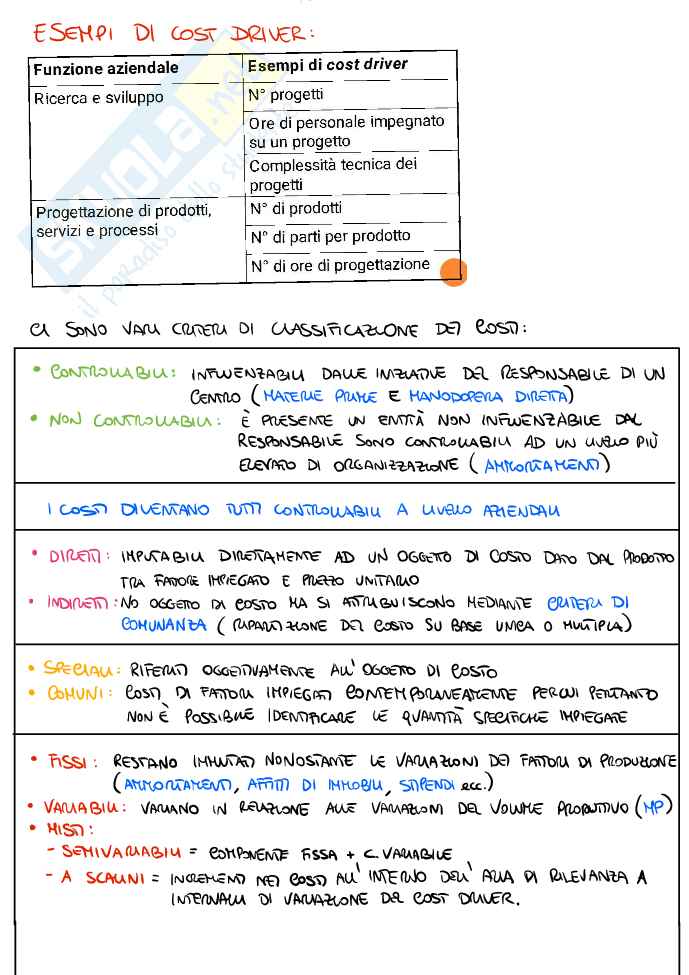 ESEMPI DI COST DRIVER:
Funzione aziendale
Esempi di cost driver
Ricerca e sviluppo
N° progetti
Ore di personale impegnato
su un progetto
Complessità tecnica dei
progetti
Progettazione di prodotti,
servizi e processi
N° di prodotti
N° di parti per prodotto
N° di ore di progettazione
SKUOLA.net
il paradiso dello studente
CI SONO VARI CRITERI DI CLASSIFICAZIONE DEI COSTI:
• CONTROLLABILI: INFLUENZABILI DALLE INIZIATIVE DEL RESPONSABILE DI UN
CENTRO (MATERIE PRIME E MANODOPERA DIRETTA)
• NON CONTROLLABILI: È PRESENTE UN ENTITÀ NON INFLUENZABILE DAL
RESPONSABILE SONO CONTROLLABILI AD UN LIVELLO PIÙ
ELEVATO DI ORGANIZZAZIONE (AMMORTAMENTI)
I COSTI DIVENTANO TUTTI CONTROLLABILI A LIVELLO AZIENDALI
• DIRETTI: IMPUTABILI DIRETTAMENTE AD UN OGGETTO DI COSTO DATO DAL PRODOTTO
TRA FATTORE IMPIEGATO E PREZZO UNITARIO
• INDIRETTI: NO OGGETTO DI COSTO MA SI ATTRIBUISCONO MEDIANTE CRITERI DI
COMUNANZA (RIPARTIZIONE DEL COSTO SU BASE UNICA O MULTIPLA)
• SPECIALI: RIFERITI OGGETTIVAMENTE ALL'OGGETTO DI COSTO
• COMUNI: COSTI DI FATTORI IMPIEGATI CONTEMPORANEAMENTE PER CUI PERTANTO
NON È POSSIBILE IDENTIFICARE LE QUANTITÀ SPECIFICHE IMPIEGATE
• FISSI: RESTANO IMMUTATI NONOSTANTE LE VARIAZIONI DEI FATTORI DI PRODUZIONE
(AMMORTAMENTI, AFFITTI DI IMMOBILI, STIPENDI ecc.)
• VARIABILI: VARIANO IN RELAZIONE ALLE VARIAZIONI DEL VOLUME PRODUTTIVO (MP)
• MISTI:
- SEMIVARIABILI = COMPONENTE FISSA + C. VARIABILE
- A SCALINI = INCREMENTI NEI COSTI ALL'INTERNO DELL'ARIA DI RILEVANZA A
INTERVALLI DI VARIAZIONE DEL COST DRIVER.